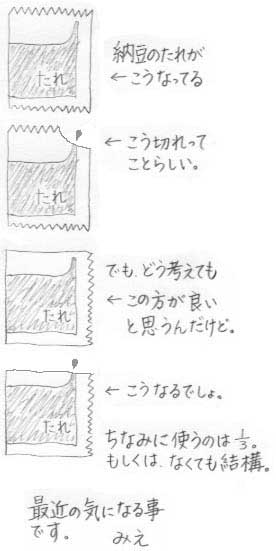 納豆のたれが
たれ ←こうなってる
←こう切れって
ことらしい。
たれ
でも、どう考えても
←この方が良い
と思うんだけど。
たれ
←こうなるでしょ。
たれ
ちなみに使うのは1/3。
もしくは、なくても結構。
最近の気になる事
です。 みえ